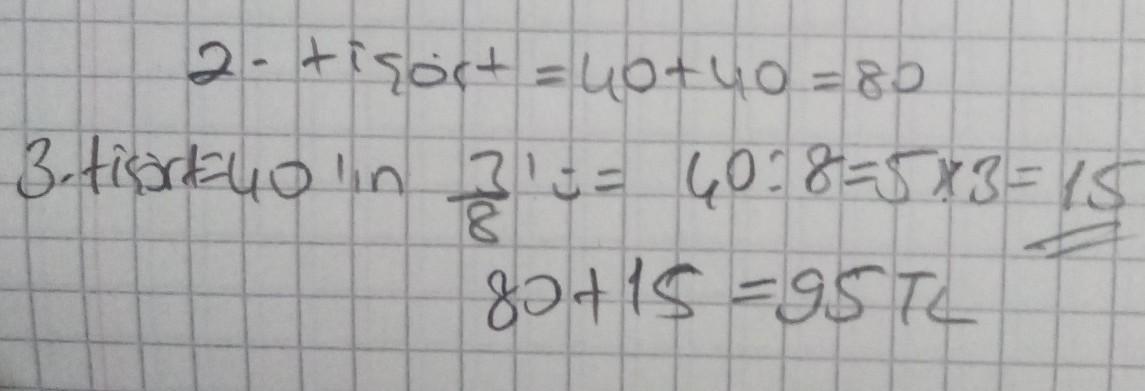 2. tişört = 40+40 = 80
3. tişört=40'ın 3/8'i = 40:8=5x3=15
80+15 = 95 TL